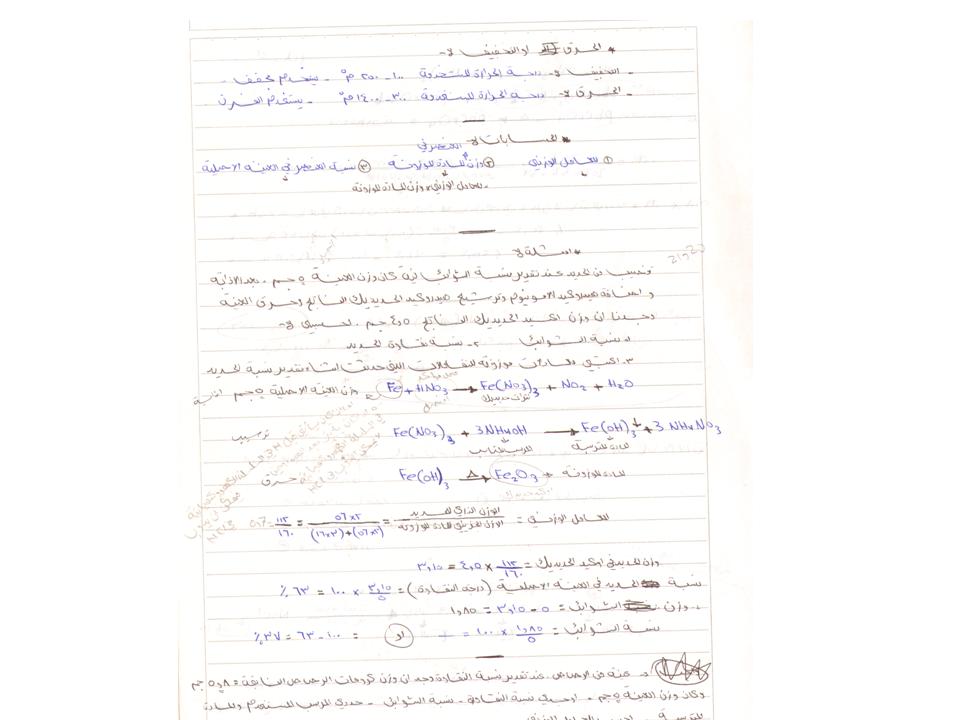 * الحرق او التجفيف :-
- التجفيف :- درجة الحرارة المستخدمة ١٠٠ - ٢٥٠ م° - يستخدم مجفف -
- الحرق :- درجة الحرارة المستخدمة ٣٠٠ - ١٤٠٠ م° - يستخدم الفرن
* الحسابات :-
① المعامل الوزني ② وزن المادة الموزونة ③ نسبة العنصر في العينة الاصلية
- المعامل الوزني × وزن المادة الموزونة
* امثلة :-
من الحديد عند تقدير نسبة الشوائب فية كان وزن العينة ٥ جم . بعد الاذابة
و اضافة هيدروكيد الامونيوم وترشيح هيدروكيد الحديديك الناتج وحرق العينة
وجدنا ان وزن اكيد الحديديك الناتج ٤,٥ جم . احسبي :-
١- نسبة الشوائب ٢- نسبة نقاوة الحديد
٣- اكتبي معادلات موزونة للتفاعلات التي حدثت اثناء تقدير نسبة الحديد
Fe + HNO3 → Fe(NO3)3 + NO2 + H2O وزن العينة الاصلية ٥ جم
Fe(NO3)3 + 3NH4OH → Fe(OH)3↓ + 3NH4NO3 ترسيب
المرسب المناسب المادة المترسبة
Fe(OH)3 →Δ Fe2O3 المادة الموزونة حرق
المعامل الوزني = الوزن الذري للحديد / الوزن الجزيئي للمادة الموزونة = ٥٦×٢ / (١٦×٣)+(٥٦×٢) = ١١٢/١٦٠ = ٠,٧
وزن الحديد في اكيد الحديديك = ١١٢/١٦٠ × ٤,٥ = ٣,١٥
نسبة الحديد في العينة الاصلية (درجة النقاوة) = ٣,١٥/٥ × ١٠٠ = ٦٣ %
وزن الشوائب = ٥ - ٣,١٥ = ١,٨٥
نسبة الشوائب = ١,٨٥/٥ × ١٠٠ = او = ١٠٠ - ٦٣ = ٣٧ %
عينة من الرصاص عند تقدير نسبة النقاوة وجد ان وزن كرومات الرصاص الناتجة = ٥,٨ جم
وكان وزن العينة ٥ جم - اوجدي نسبة النقاوة - نسبة الشوائب - حددي المرسب المستخدم والمادة
المترسبة